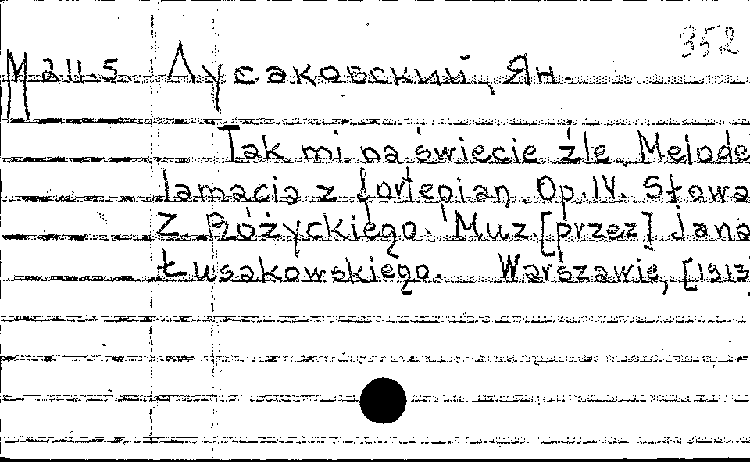 352
М 211.5 Лусаковский, Ян.
Tak mi na świecie źle. Melode
lamacja z fortepian. Op. IV. Słowa
Z. Różyckiego. Muz. [przez] Jana
Łusakowskiego. Warszawie, [1913